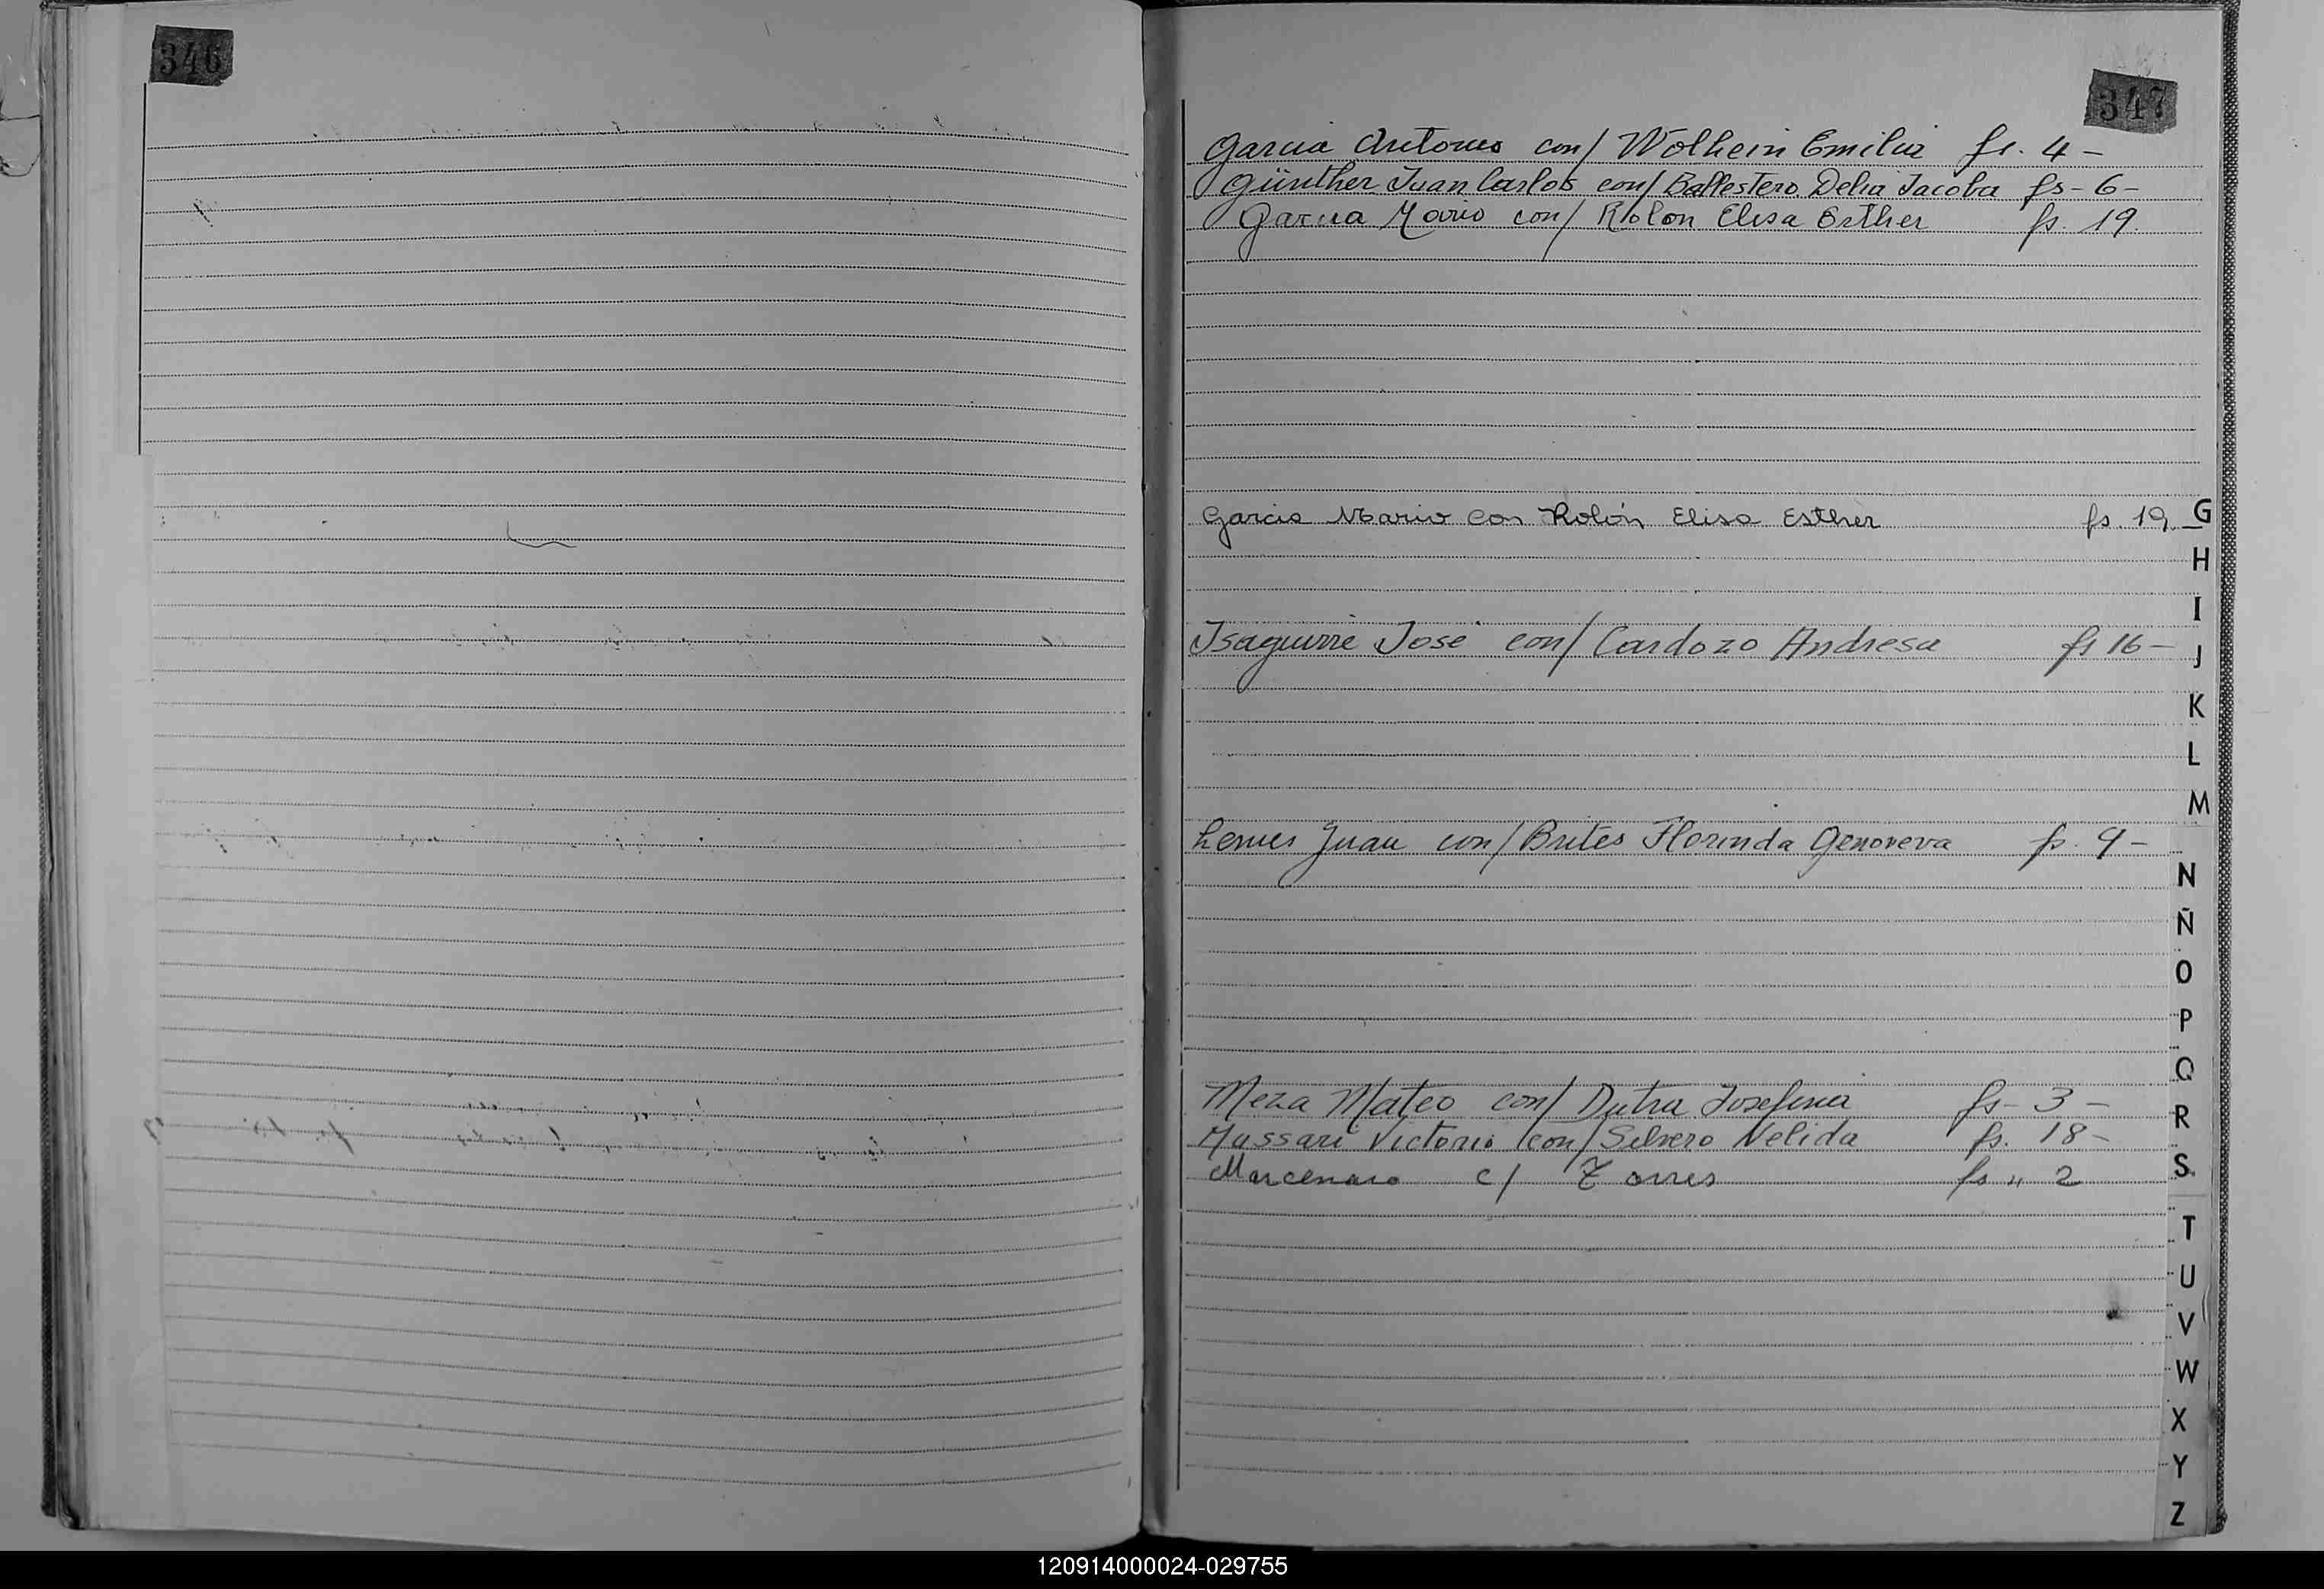 346
347
Garcia Antonio con/ Wolhein Emilia fs. 4 -
Günther Juan Carlos con/ Ballestero Delia Jacoba fs - 6 -
Garcia Mario con/ Rolon Elisa Esther fs. 19.
Garcia Mario con Rolón Elisa Esther fs. 19.
G
H
I
Isaguirre José con/ Cardozo Andresa fs 16 -
J
K
L
M
Lemes Juan con/ Brites Florinda Genoveva fs. 9 -
N
Ñ
O
P
Q
Meza Mateo con/ Dutra Josefina fs - 3 -
R
Mussari Victorio con/ Silvero Nelida fs. 18 -
Marcenaro c/ Torres fs " 2
S
T
U
V
W
X
Y
Z
120914000024-029755